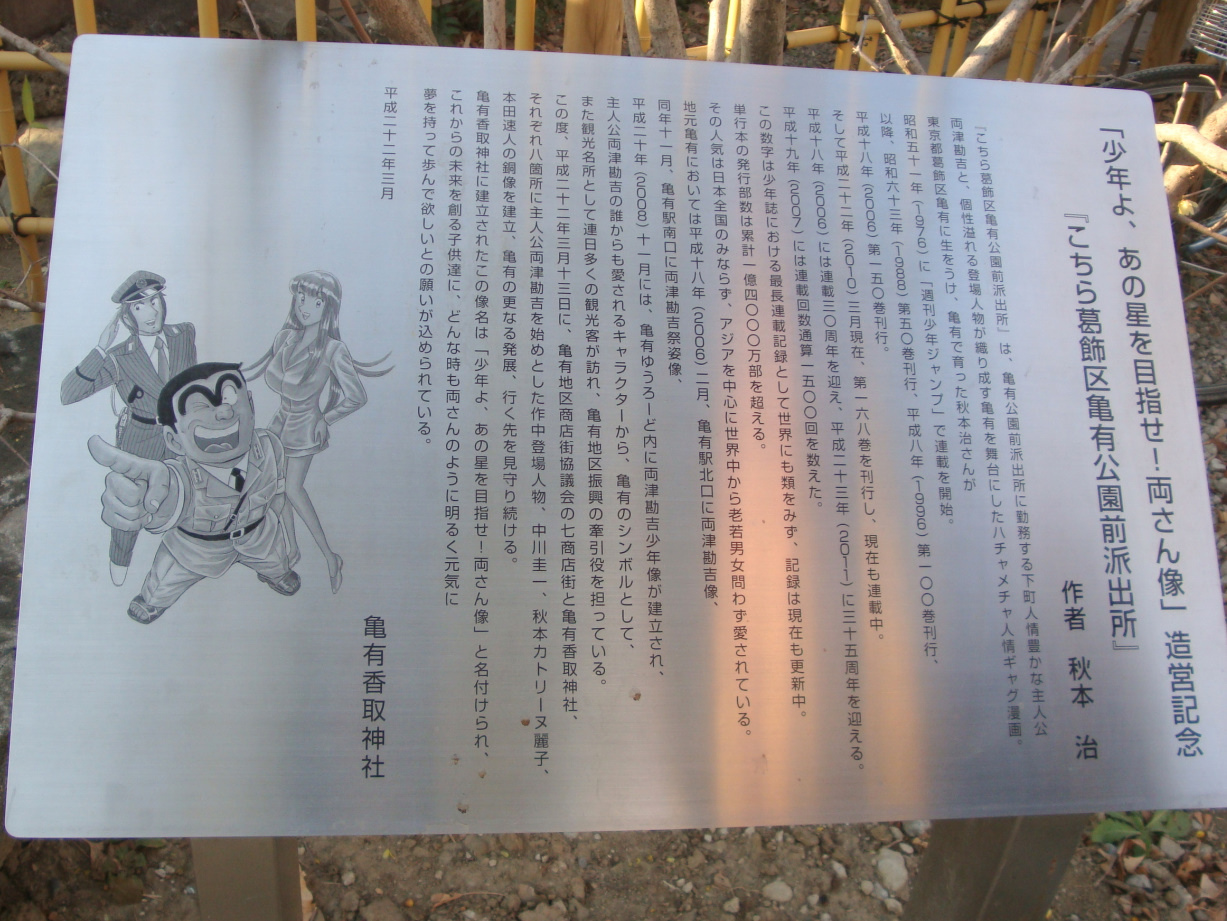 「少年よ、あの星を目指せ！両さん像」造営記念
『こちら葛飾区亀有公園前派出所』
作者　秋本　治
『こちら葛飾区亀有公園前派出所』は、亀有公園前派出所に勤務する下町人情豊かな主人公
両津勘吉と、個性溢れる登場人物が織り成す亀有を舞台にしたハチャメチャ人情ギャグ漫画。
東京都葛飾区亀有に生をうけ、亀有で育った秋本治さんが
昭和五十一年（1976）に「週刊少年ジャンプ」で連載を開始。
以降、昭和六十三年（1988）第五〇巻刊行、平成八年（1996）第一〇〇巻刊行、
平成十八年（2006）第一五〇巻刊行。
そして平成二十二年（2010）三月現在、第一六八巻を刊行し、現在も連載中。
平成十八年（2006）には連載三〇周年を迎え、平成二十三年（2011）に三十五周年を迎える。
平成十九年（2007）には連載回数通算一五〇〇回を数えた。
この数字は少年誌における最長連載記録として世界にも類をみず、記録は現在も更新中。
単行本の発行部数は累計一億四〇〇〇万部を超える。
その人気は日本全国のみならず、アジアを中心に世界中から老若男女問わず愛されている。
地元亀有においては平成十八年（2006）二月、亀有駅北口に両津勘吉像、
同年十一月、亀有駅南口に両津勘吉祭姿像、
平成二十年（2008）十一月には、亀有ゆうろーど内に両津勘吉少年像が建立され、
主人公両津勘吉の誰からも愛されるキャラクターから、亀有のシンボルとして、
また観光名所として連日多くの観光客が訪れ、亀有地区振興の牽引役を担っている。
この度、平成二十二年三月十三日に、亀有地区商店街協議会の七商店街と亀有香取神社、
それぞれ八箇所に主人公両津勘吉を始めとした作中登場人物、中川圭一、秋本カトリーヌ麗子、
本田速人の銅像を建立、亀有の更なる発展、行く先を見守り続ける。
亀有香取神社に建立されたこの像名は「少年よ、あの星を目指せ！両さん像」と名付けられ、
これからの未来を創る子供達に、どんな時も両さんのように明るく元気に
夢を持って歩んで欲しいとの願いが込められている。
平成二十二年三月
亀有香取神社